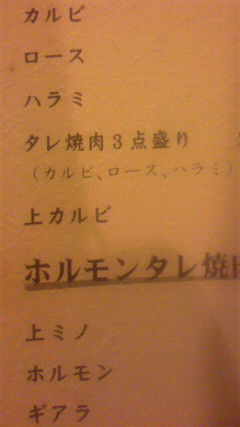 カルビ
ロース
ハラミ
タレ焼肉3点盛り
(カルビ、ロース、ハラミ)
上カルビ
ホルモンタレ焼
上ミノ
ホルモン
ギアラ